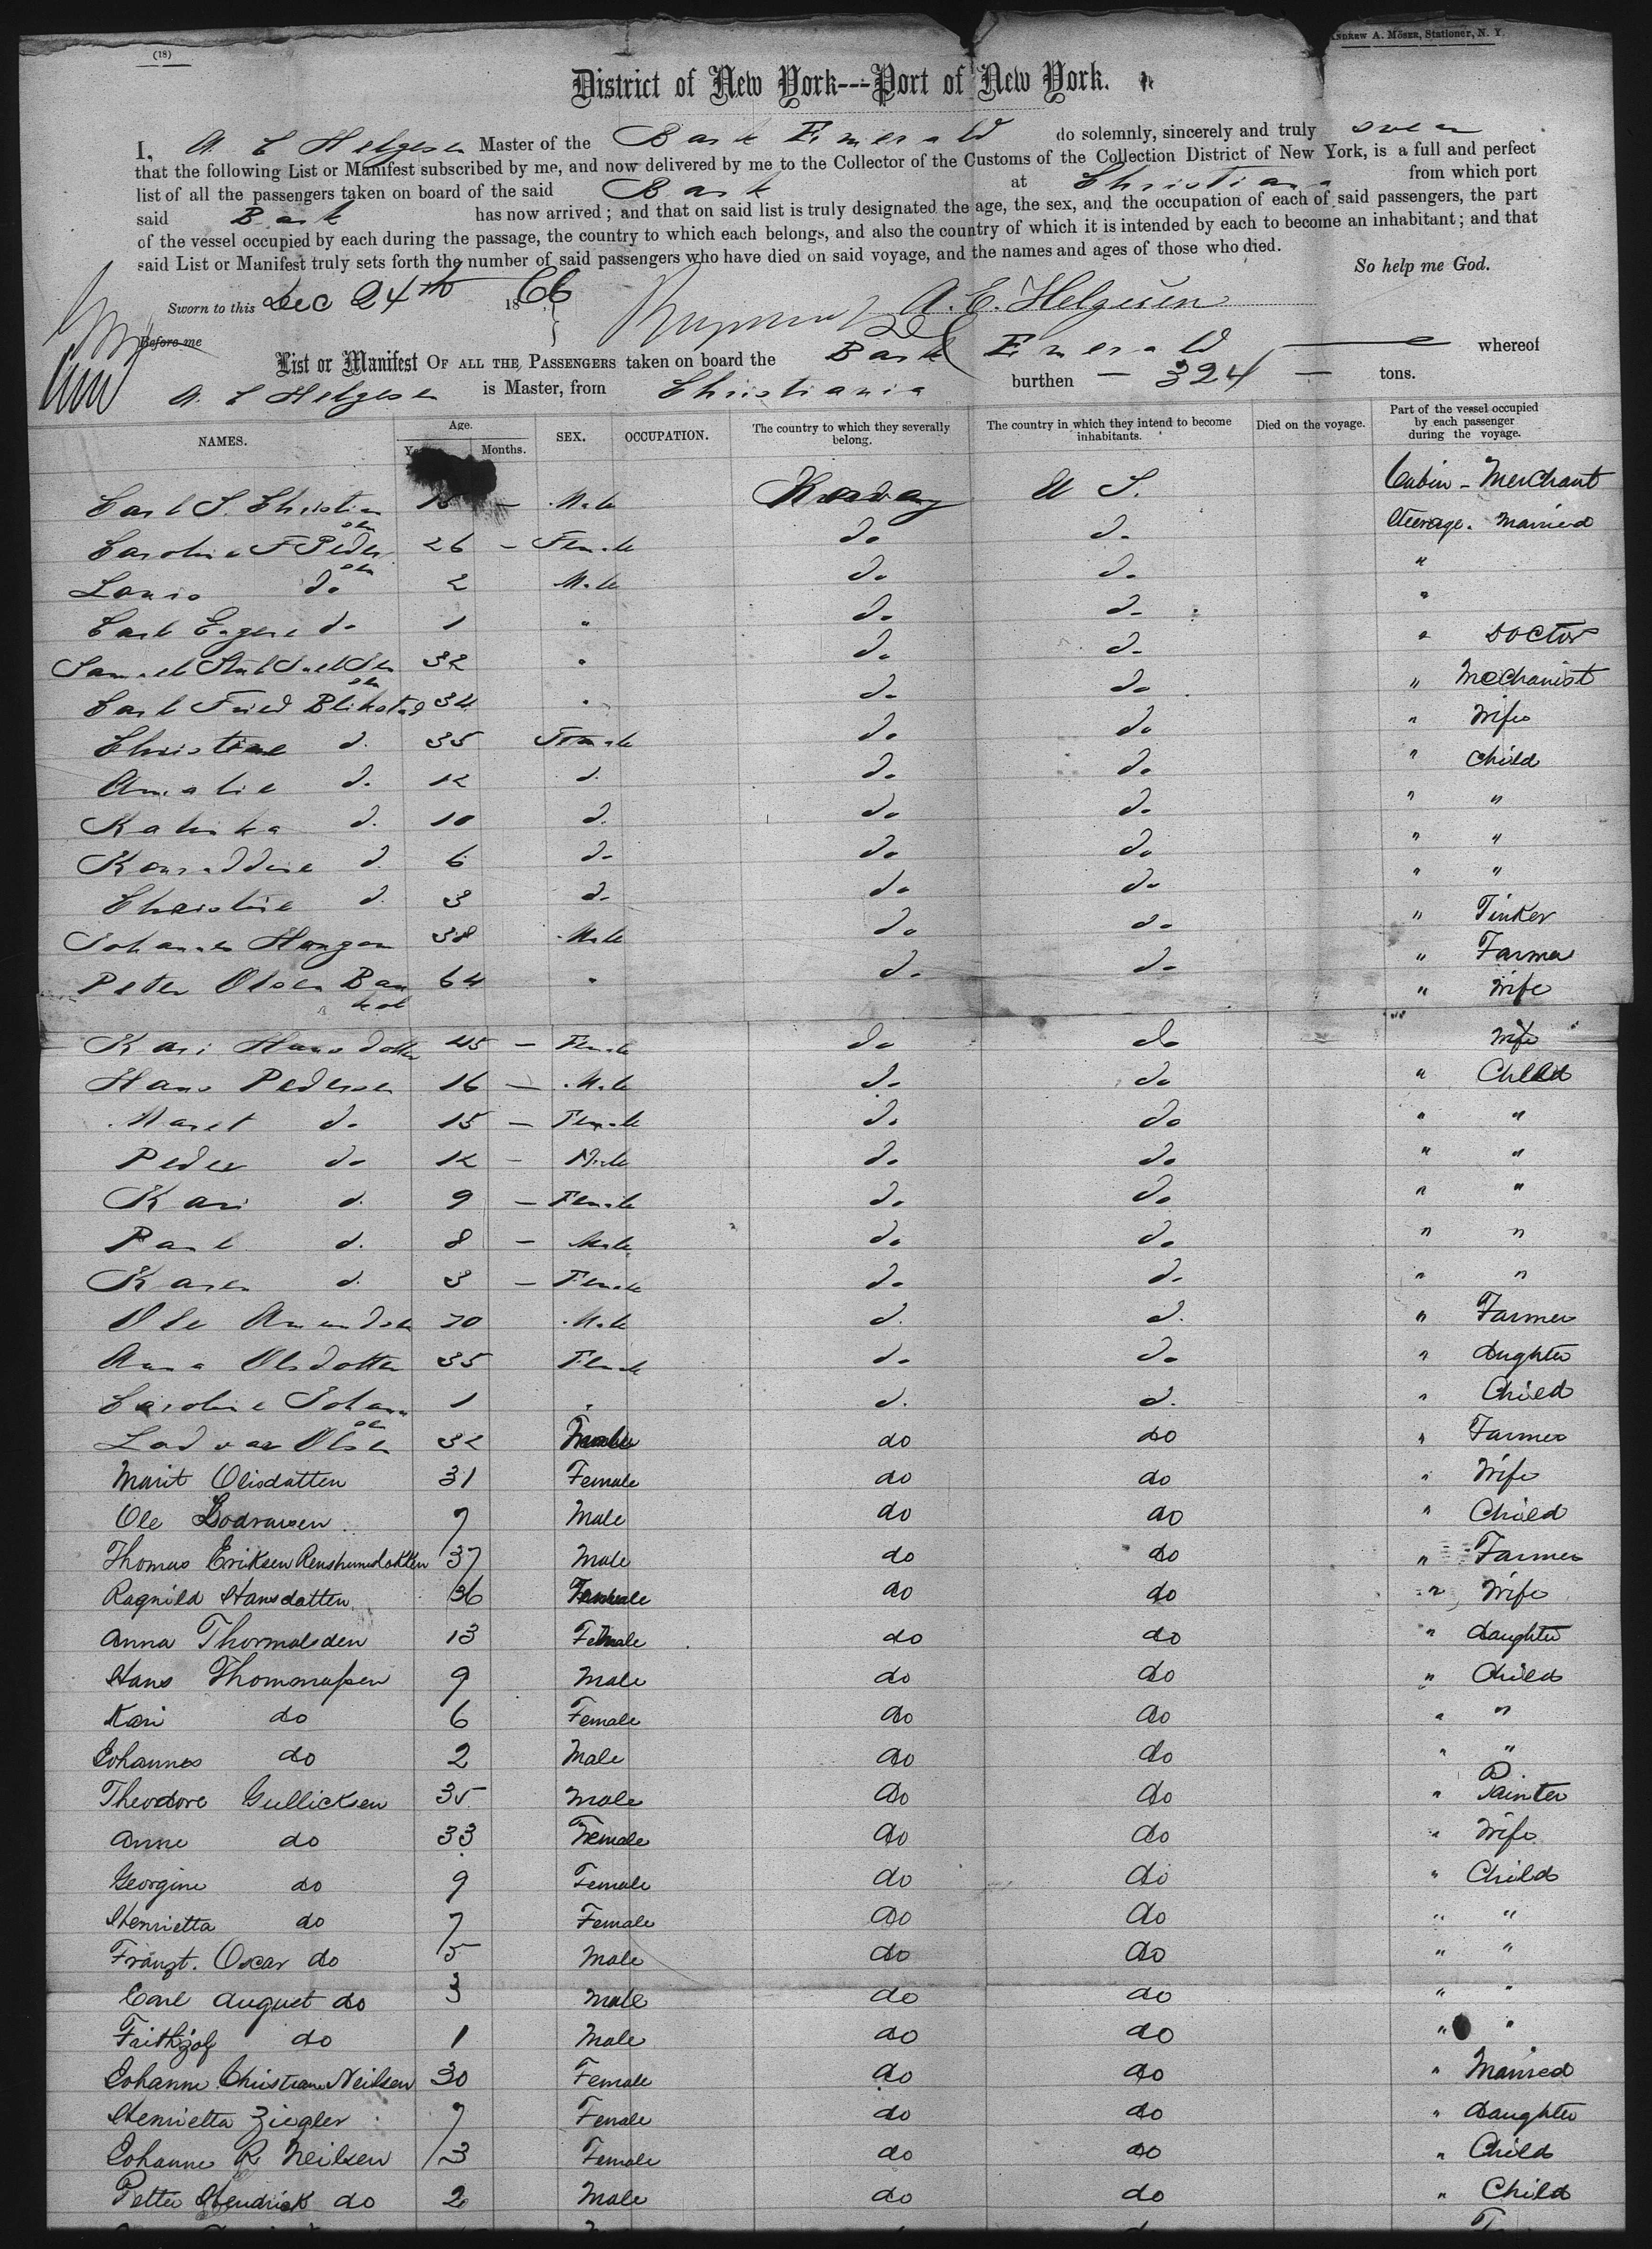 (18)
ANDREW A. MOSER, Stationer, N. Y.
District of New York---Port of New York.
I, A. E Helgesen Master of the Bark Emerald do solemnly, sincerely and truly swear
that the following List or Manifest subscribed by me, and now delivered by me to the Collector of the Customs of the Collection District of New York, is a full and perfect
list of all the passengers taken on board of the said Bark at Christiana from which port
said Bark has now arrived; and that on said list is truly designated the age, the sex, and the occupation of each of said passengers, the part
of the vessel occupied by each during the passage, the country to which each belongs, and also the country of which it is intended by each to become an inhabitant; and that
said List or Manifest truly sets forth the number of said passengers who have died on said voyage, and the names and ages of those who died.
So help me God.
Sworn to this Dec 24th 1866 A. E. Helgesen
Before me
List or Manifest OF ALL THE PASSENGERS taken on board the Bark Emerald whereof
A. E Helgesen is Master, from Christiania burthen 324 tons.
NAMES. Age. Months. SEX. OCCUPATION. The country to which they severally belong. The country in which they intend to become inhabitants. Died on the voyage. Part of the vessel occupied by each passenger during the voyage.
Carl S. Christian sen — Male Norway U S. Cabin - Merchant
Caroline F Peder sen 26 — Female do do Steerage. Married
Louis do 2 Male do do "
Carl Eugene do 1 " do do "
Samuel 32 " do do " Doctor
Carl Fried Blikstad 34 " do do " Mechanist
Christine do 35 Female do do " Wife
Amalie do 12 do do do " Child
Katinka do 10 do do do " "
Konraddine do 6 do do do " "
Christine do 3 do do do " "
Johannes Haugan 38 Male do do " Tinker
Peter Olsen Bau 64 " do do " Farmer
" Wife
Kari Hansdatter 45 — Female do do " Wife
Hans Pedersen 16 — Male do do " Child
Maret do 15 — Female do do " "
Peder do 12 — Male do do " "
Kari do 9 — Female do do " "
Paul do 8 — Male do do " "
Karen do 3 — Female do do " "
Ole Amundsen 70 Male do do " Farmer
Anna Olsdatter 35 Female do do " daughter
Caroline Johan sen 1 " do do " Child
Lodvar Olsen 32 do do " Farmer
Marit Olisdatten 31 Female do do " Wife
Ole Lodvarsen 7 Male do do " Child
Thomas Eriksen 37 Male do do " Farmer
Ragnild Hansdatten 36 Female do do " Wife
Anna Thormalsden 13 Female do do " daughter
Hans Thommassen 9 Male do do " Child
Kari do 6 Female do do " "
Johannes do 2 Male do do " "
Theodore Gullicksen 35 Male do do " Painter
Anne do 33 Female do do " Wife
Georgine do 9 Female do do " Child
Henrietta do 7 Female do do " "
Franzt. Oscar do 5 Male do do " "
Carl August do 3 Male do do " "
Faithjof do 1 Male do do " "
Johanne Christiane Neilsen 30 Female do do " Married
Henrietta Ziegler 7 Female do do " daughter
Johanne R Neilsen 3 Female do do " Child
Petter Hendrick do 2 Male do do " Child